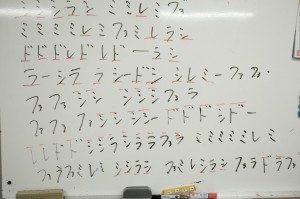 ミミシラシ ミミレミファ
ミミミミレミファミレラシ
ドドドレドレドーラシ
ラーシラ ラシードシ シレミーファファ
ファファ ミミミファ ラ
ファファ ファミミ ドドドドシドー
ドド ミミミミミレミ
ファラファミレミ シシラシ ファミレシラシ ファラドラファミ